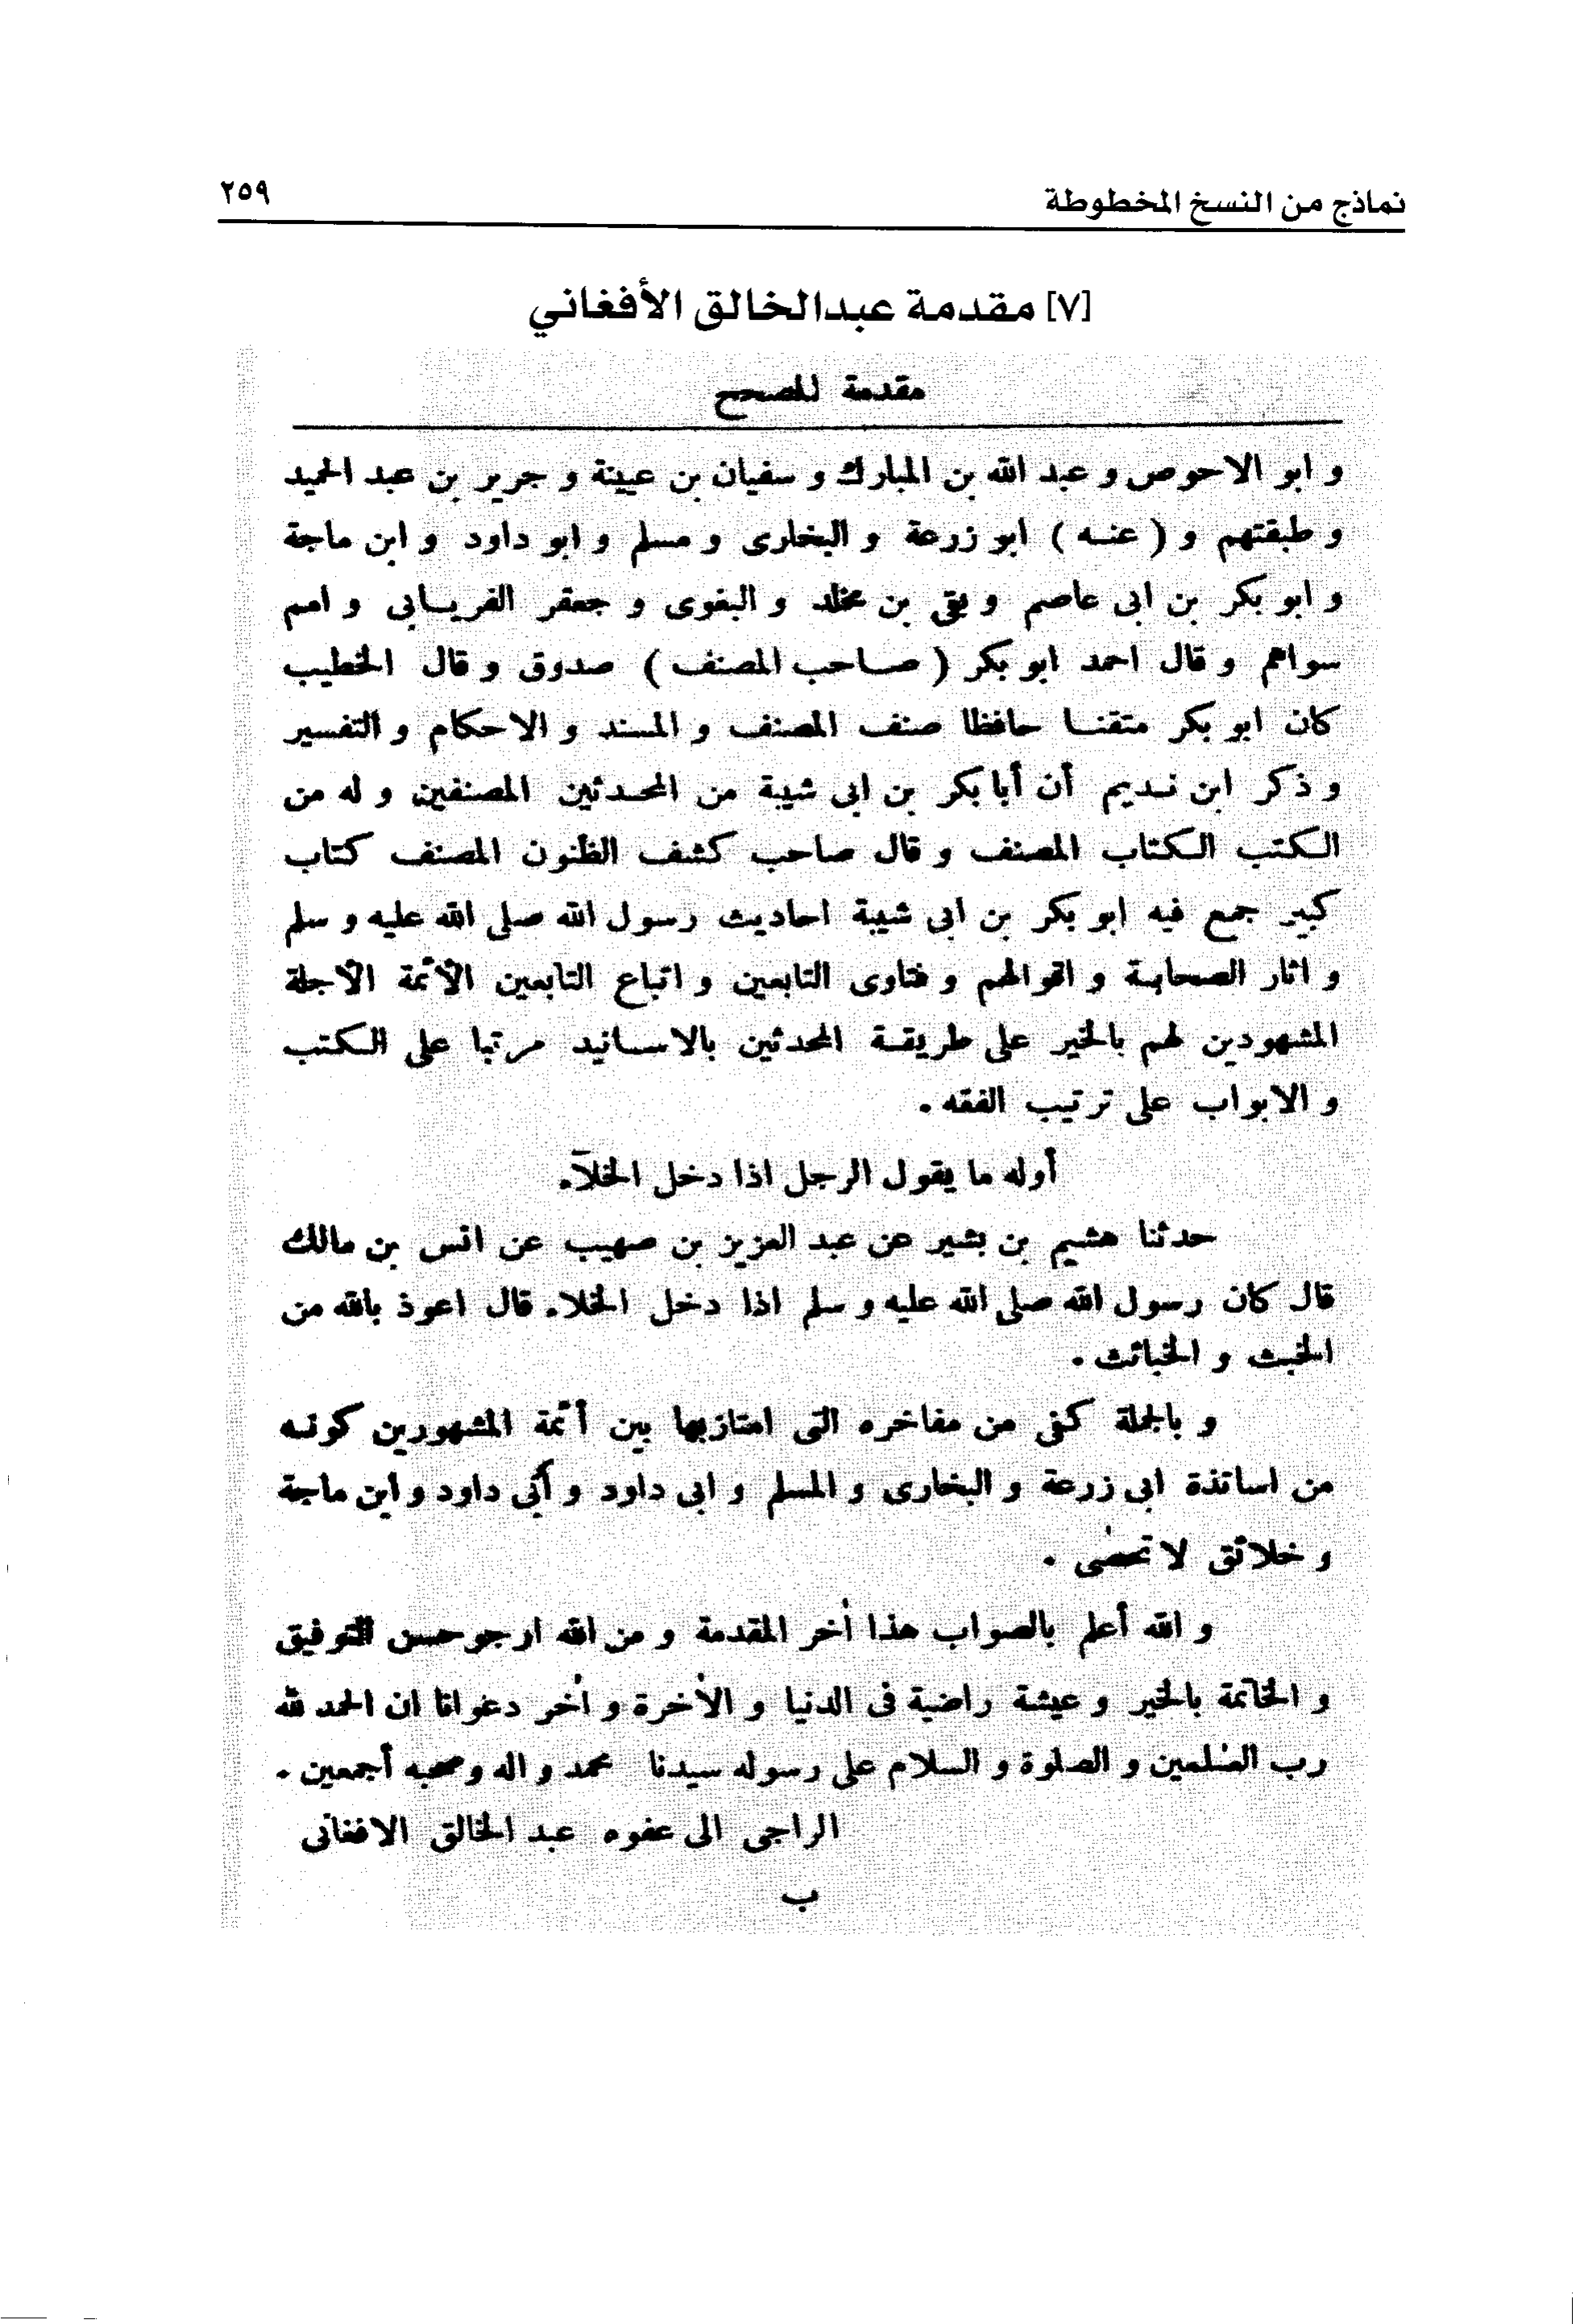 نماذج من النسخ المخطوطة ٢٥٩
[٧] مقدمة عبدالخالق الأفغاني
مقدمة للصحح
و ابو الاحوص و عبد الله بن المبارك و سفيان بن عيينة و جرير بن عبد الحميد
و طبقتهم و ( عنه ) ابو زرعة و البخارى و مسلم و ابو داود و ابن ماجة
و ابو بكر بن ابى عاصم و بقى بن مخلد و البغوى و جعفر الفريابى و امم
سواهم و قال احمد ابو بكر ( صاحب المصنف ) صدوق و قال الخطيب
كان ابو بكر متقنا حافظا صنف المصنف و المسند و الاحكام و التفسير
و ذكر ابن نديم أن أبا بكر بن ابى شيبة من المحدثين المصنفين و له من
الكتب الكتاب المصنف و قال صاحب كشف الظنون المصنف كتاب
كبير جمع فيه ابو بكر بن ابى شيبة احاديث رسول الله صلى الله عليه و سلم
و اثار الصحابة و اقوالهم و فتاوى التابعين و اتباع التابعين الأئمة الأجلة
المشهودين لهم بالخير على طريقة المحدثين بالاسانيد مرتبا على الكتب
و الابواب على ترتيب الفقه .
أوله ما يقول الرجل اذا دخل الخلآء
حدثنا هشيم بن بشير عن عبد العزيز بن صهيب عن انس بن مالك
قال كان رسول الله صلى الله عليه و سلم اذا دخل الخلاء قال اعوذ بالله من
الخبث و الخبائث .
و بالجملة كفى من مفاخره التى امتازبها بين أئمة المشهورين كونه
من اساتذة ابى زرعة و البخارى و المسلم و ابى داود و أبى داود و ابن ماجة
و خلائق لا تحصٰى .
و الله أعلم بالصواب هذا أخر المقدمة و من الله ارجو حسن التوفيق
و الخاتمة بالخير و عيشة راضية فى الدنيا و الأخرة و أخر دعوانا ان الحمد لله
رب العٰلمين و الصلوة و السلام على رسوله سيدنا محمد و اله و صحبه أجمعين .
الراجى الى عفوه عبد الخالق الافغانى
ب